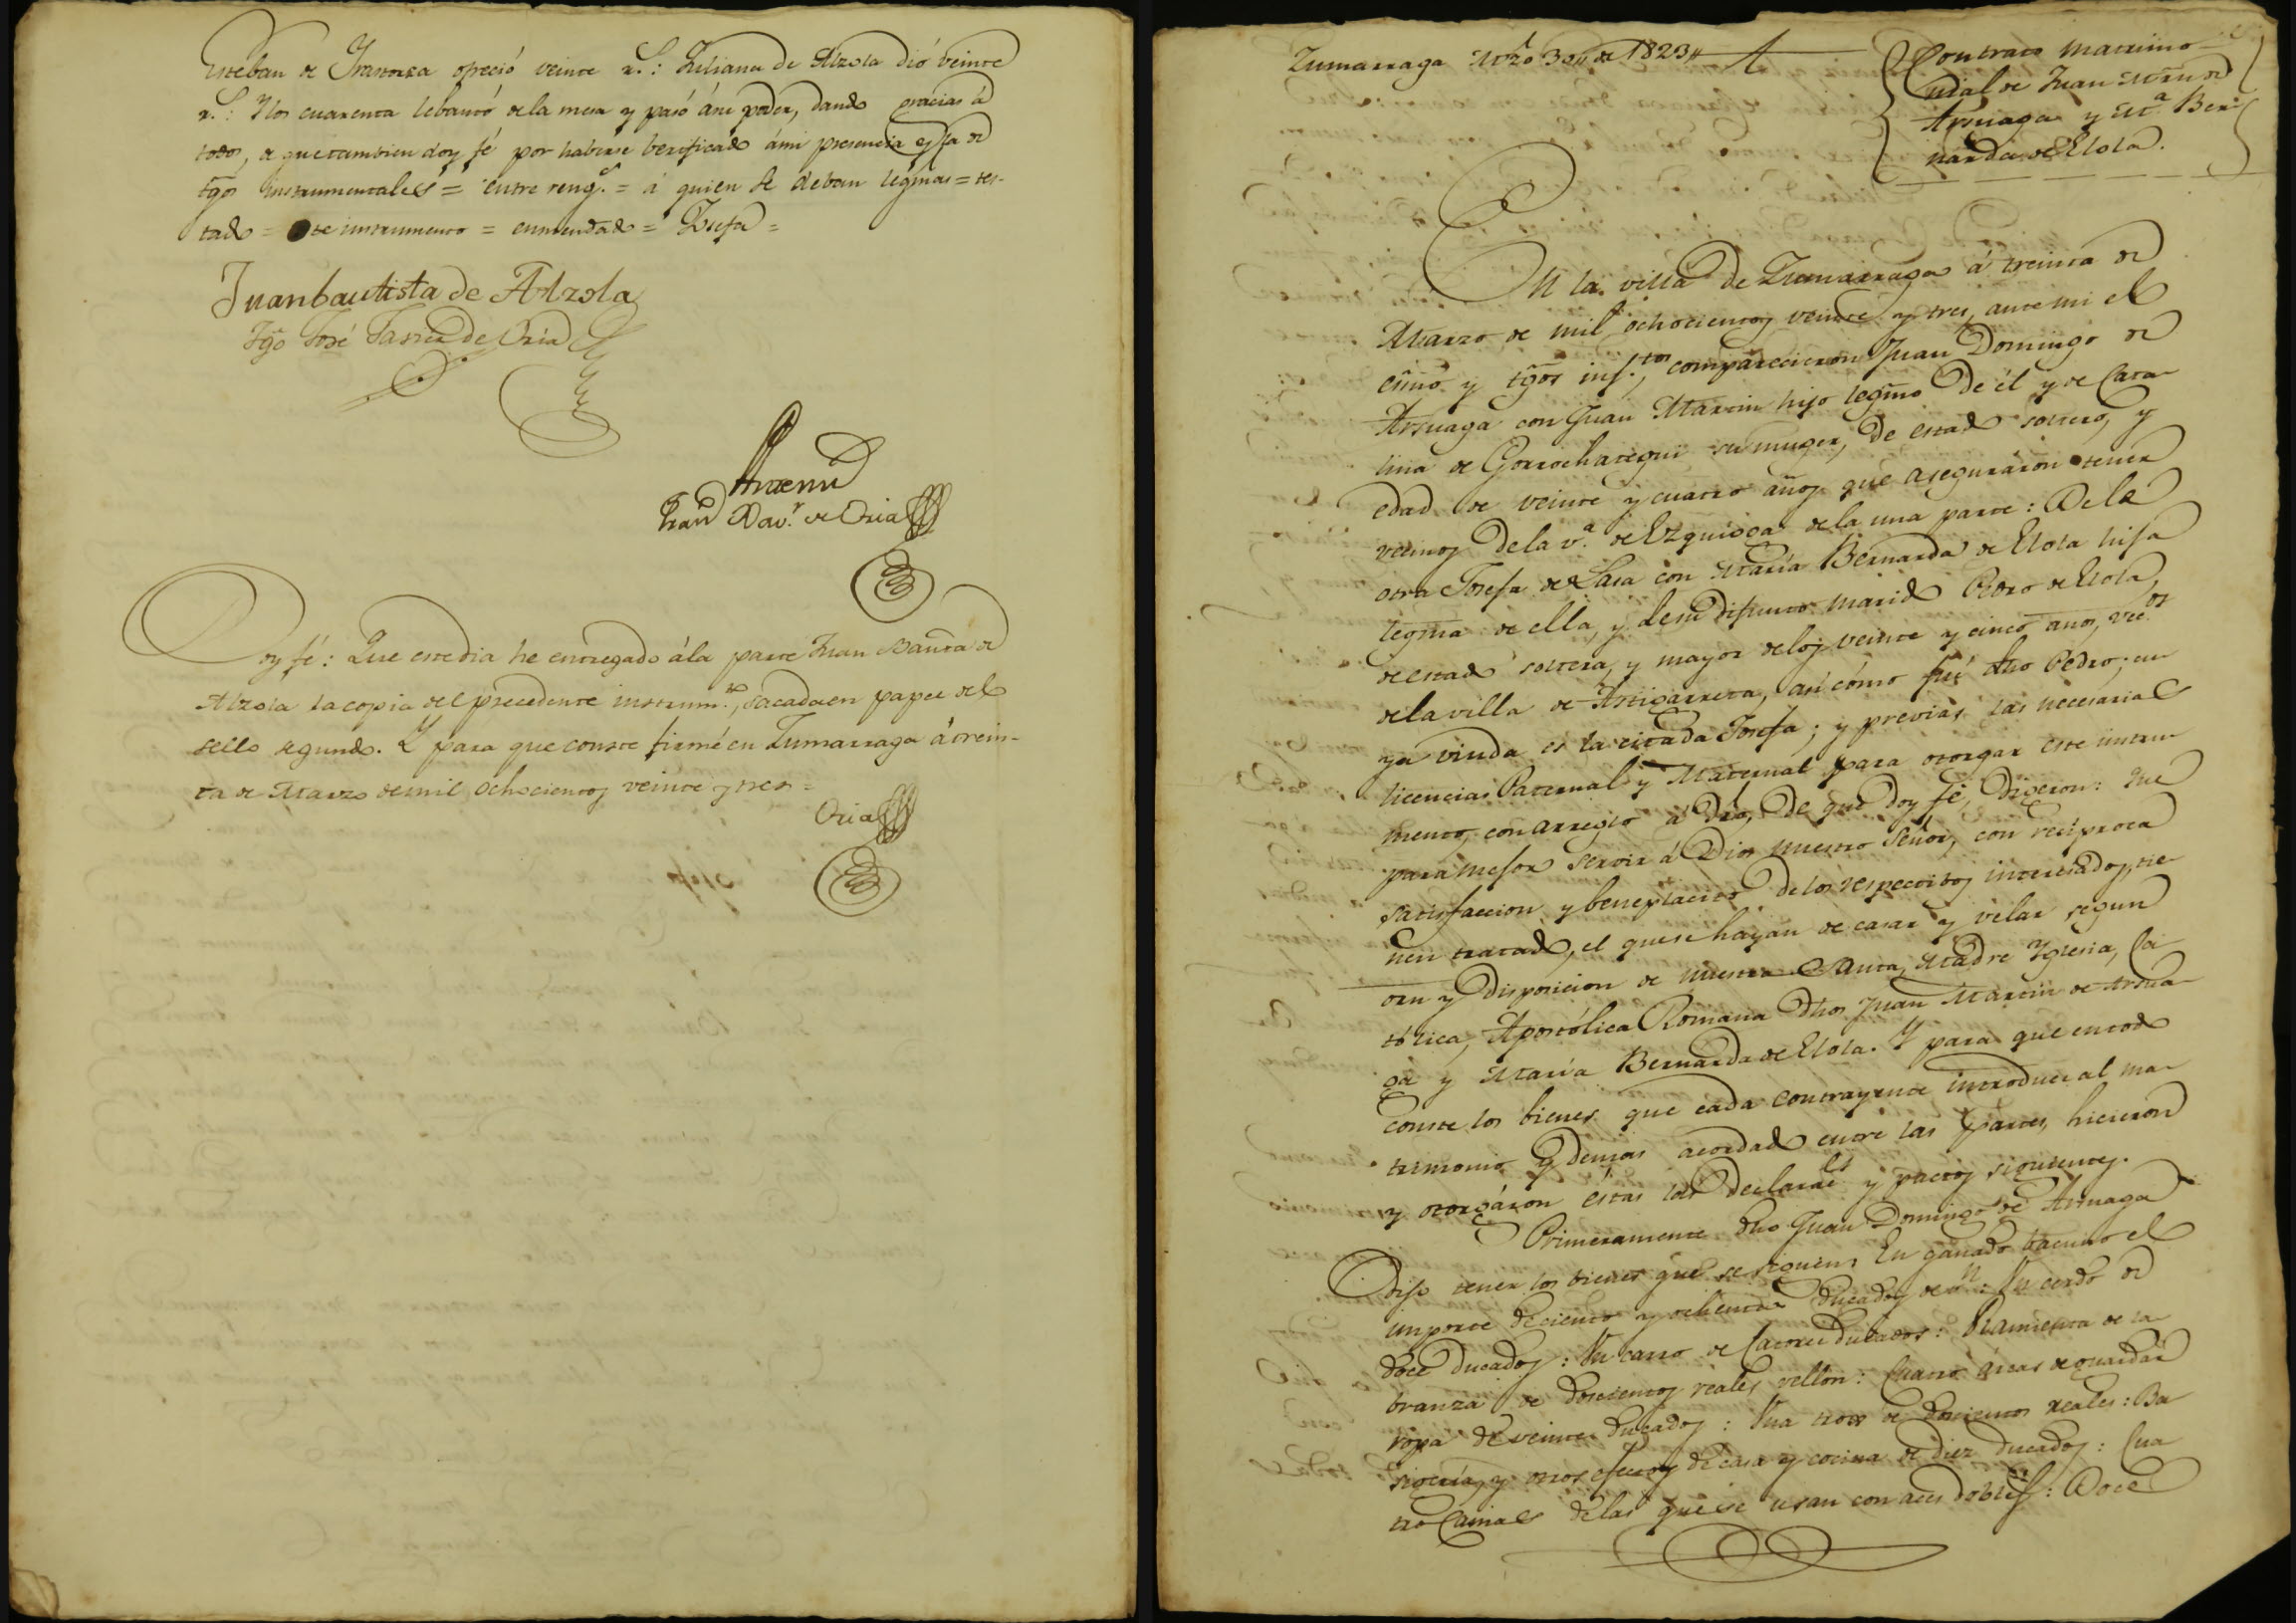 Esteban de Yrastorza ofreció veinte r.s: Juliana de Alzola dió veinte
r.s: Y los cuarenta lebantó de la mesa y pasó á su poder, dando gracias á
todos, de que tambien doy fé por haberse berificado á mi presencia y la de
tgõs instrumentales = entre reng.s = á quien se deban legmas = tes-
tado = este instrumento = enmendado = Josefa =
Juanbautista de Alzola
Tgõ José Javier de Oria
Antemi
Fran.co Xav.r de Oria
Doy fé: Que este dia he entregado á la parte Juan Bauta de
Alzola la copia del precedente instrum.to, sacada en papel del
sello segundo. Y para que conste firmé en Zumarraga á trein-
ta de Marzo de mil ochocientos veinte y tres =
Oria
Zumarraga Mzo 30,, de 1823,,
Contrato Matrimo-
nial de Juan Mrn de
Arsuaga y M.a Ber-
narda de Elola.
En la villa de Zumarraga á treinta de
Marzo de mil ochocientos veinte y tres, ante mi el
essno y tgõs ins.tos comparecieron Juan Domingo de
Arsuaga con Juan Martin hijo legmo de él y de Cata-
lina de Gorrochategui su muger, de estado soltero, y
edad de veinte y cuatro años que aseguráron tener
vecinos de la v.a de Ezquioga de la una parte: De la
otra Josefa de Lasa con María Bernarda de Elola hija
legma de ella, y de su difunto marido Pedro de Elola,
de estado soltera, y mayor de los veinte y cinco años, vec.os
de la villa de Astigarreta, así cómo fué dho Pedro; cu-
ya viuda es la citada Josefa; y previas las necesarias
licencias Paternal y Maternal para otorgar este instru-
mento, con arreglo á dro, de que doy fé, digeron: Que
para mejor servir á Dios nuestro Señor, con recíproca
satisfaccion y beneplacito de los respectibos interesados, tie-
nen tratado, el que se hayan de casar y velar segun
orn y disposicion de nuestra Santa Madre Yglesia, Ca-
tólica, Apostólica Romana dhos Juan Martin de Arsua-
ga y María Bernarda de Elola. Y para que en todo
conste los bienes que cada contrayente introduce al ma-
trimonio y demas acordado entre las partes, hicieron
y otorgáron éstas las declaraes y pactos siguientes.
Primeramente dho Juan Domingo de Arsuaga
dijo tener los bienes que se siguen: En ganado bacuno el
importe de ciento y ochenta ducados de v.n: Un cerdo de
doce ducados: Un carro de Catorce ducados: Ramienta de la-
branza de doscientos reales vellon: Cuatro arcas de guardar
ropa de veinte ducados: Una troxe de doscientos reales: Ba-
sigería, y otros efectos de casa y cocina de diez ducados: Cua-
tro Camas de las que se usan con aces dobles: Doce